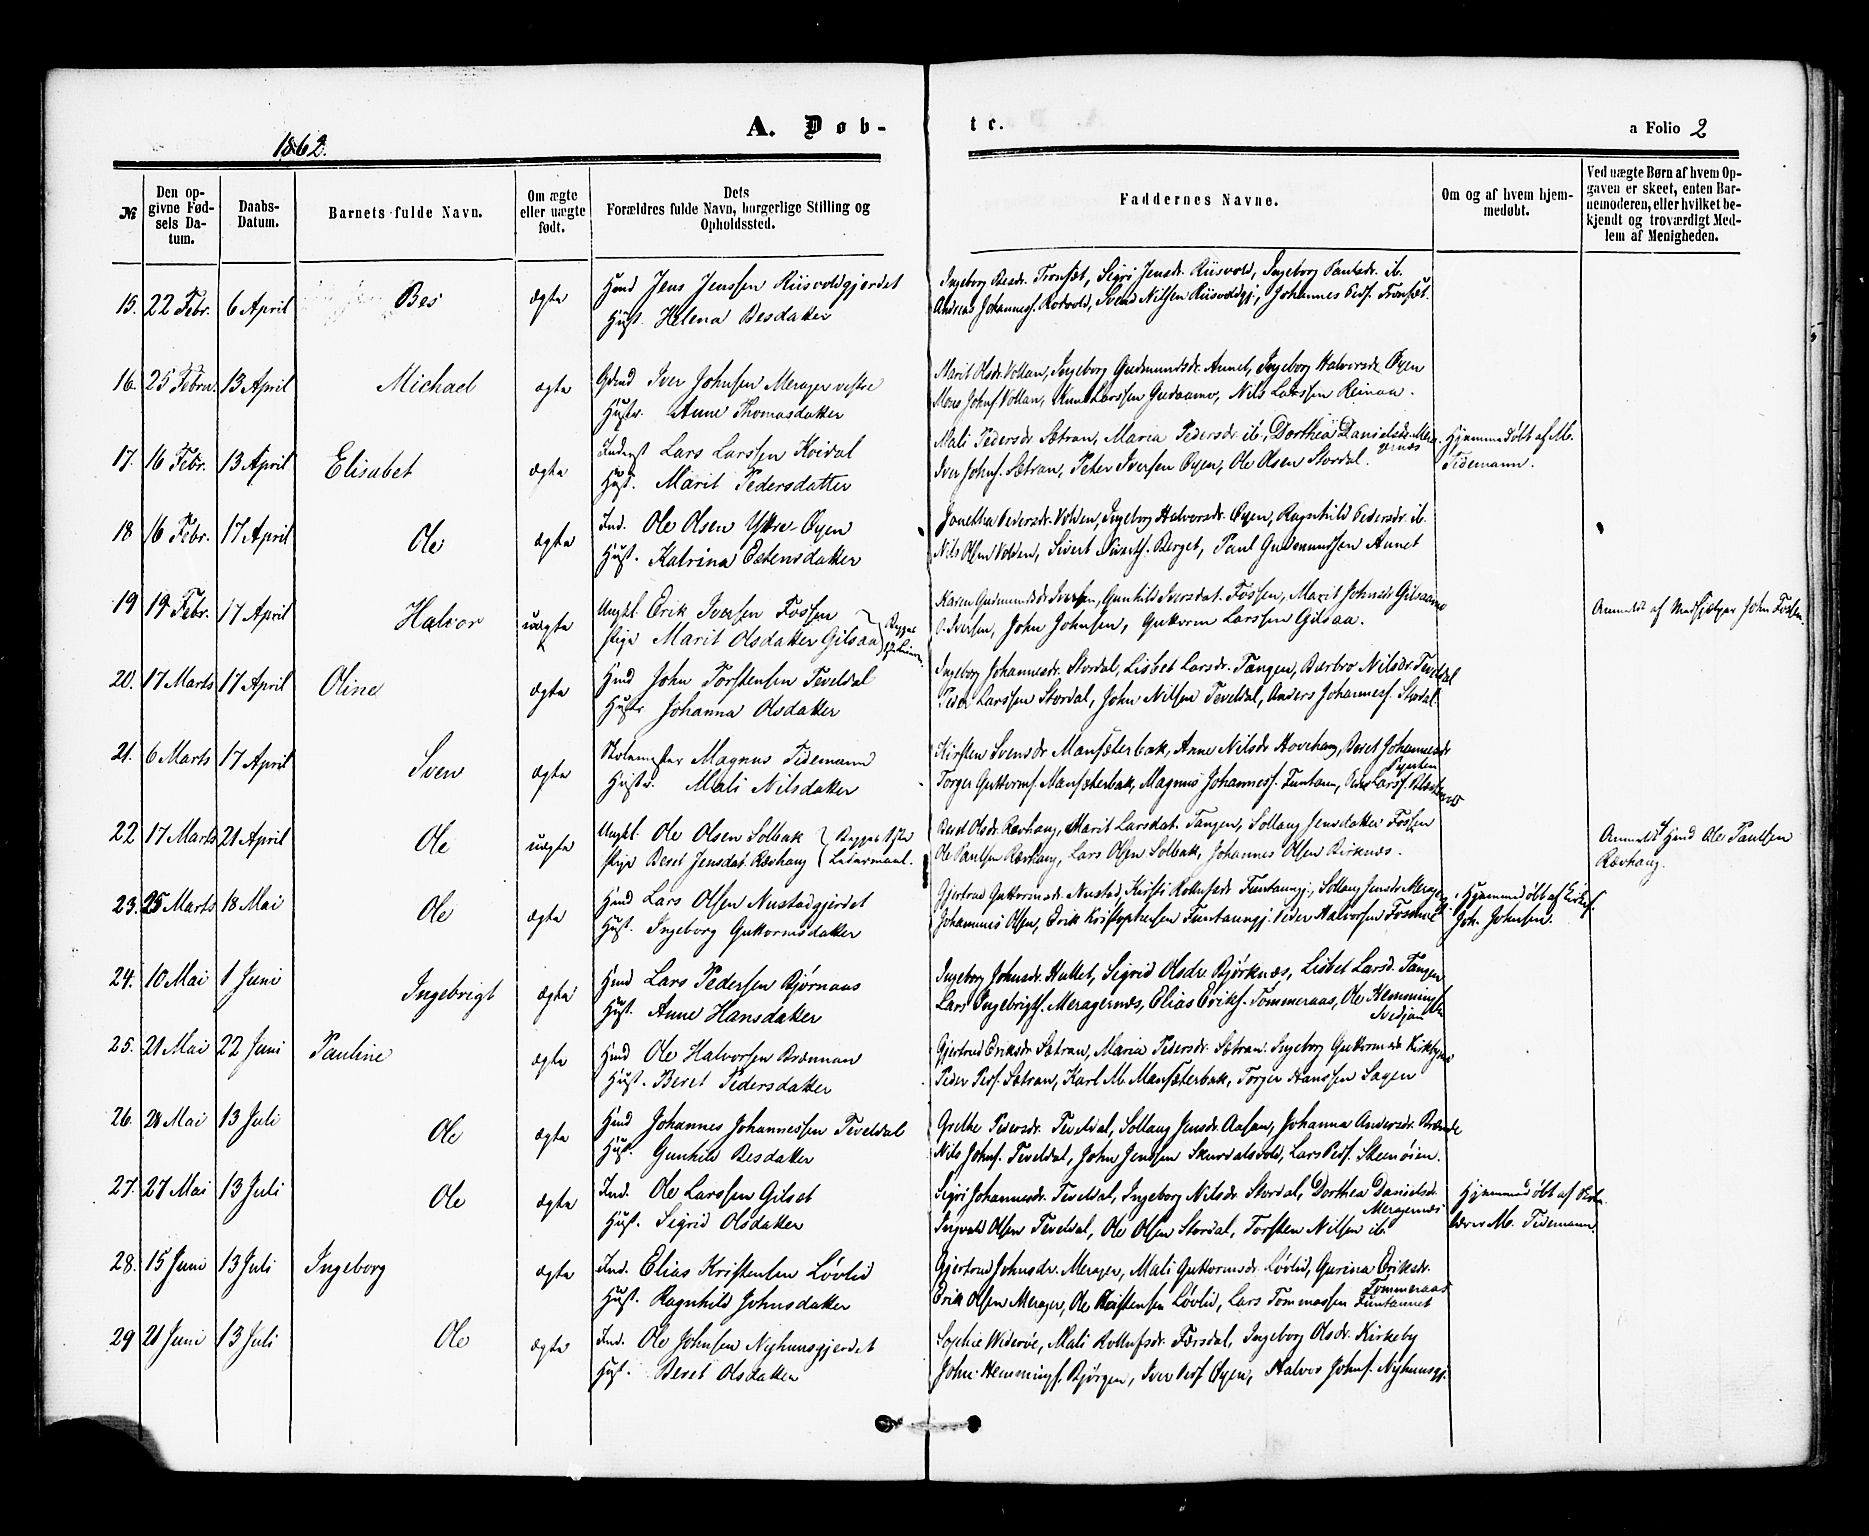 1862.
A. Døb-
te.
a Folio 2
№
Den opgivne Fødsels Datum.
Daabs-Datum.
Barnets fulde Navn.
Om ægte eller uægte født.
Dets Forældres fulde Navn, borgerlige Stilling og Opholdssted.
Faddernes Navne.
Om og af hvem hjemmedøbt.
Ved uægte Børn af hvem Opgaven er skeet, enten Barnemoderen, eller hvilket bekjendt og troværdigt Medlem af Menigheden.
15. 22 Febr. 6 April Bes ægte Hmd Jens Jenssen Riisvoldgjerdet
Hust. Helena Besdatter
Ingeborg Besdr. Tronsæt, Sigri Jensdr. Riisvold, Ingeborg Paulsdr. ib.
Andreas Johannesf. Rodvold, Svend Nilsen Riisvoldgj, Johannes Pedf. Tronsæt.
16. 25 Febru. 13 April Michael ægte Gdmd Iver Johnsen Merager vestre
Hustr. Anne Thomasdatter
Marit Olsdr. Vollan, Ingeborg Gudmundsdr. Annet, Ingeborg Halvorsdr Øyen
Mons Johnf Vollan, Knut Larssen Gudaamo, Nils Larssen Reinaa.
17. 16 Febr. 13 April Elisabet ægte Inderst Lars Larssen Kvidal
Hust. Marit Pedersdatter
Mali Pedersdr. Sætran, Maria Pedersdr. ib, Dorthea Danielsdr. Mera-
gernæs
Iver Johnf. Sætran, Peter Iversen Øyen, Ole Olsen Stordal.
Hjemmedøbt af M.
Tidemann.
18 16 Febr. 17 April Ole ægte Ind. Ole Olsen Yttre-Øyen
Hust. Katrina Estensdatter
Jonetha Pedersdr. Volden, Ingeborg Halvorsdr. Øyen, Ragnhild Pedersdr. ib.
Nils Olsen Volden, Sivert Sivertf. Berget, Paul Gudmundsen Annet
19 19 Febr. 17 April Halvor uægte Ungkl. Erik Iversen Fossen
Pige Marit Olsdatter Gilsaa
Karen Gudmundsdr Iversen, Gunhild Iversdat. Fossen, Marit Johnsdr Gilsaamo
O. Iversen, John Johnsen, Guttorm Larssen Gilsaa.
Anmeldt af Medhjelper John Fossen.
20. 17 Marts 17 April Oline ægte Hmd John Torstensen Teveldal
Hustr Johanna Olsdatter
Ingeborg Johannesdr. Stordal, Lisbet Larsdr. Tangen, Barbro Nilsdr. Teveldal
Peder Larssen Stordal, John Nilsen Teveldal, Anders Johannesf. Stordal
21. 6 Marts 17 April Sven ægte Skolemester Magnus Tidemann
Hustr. Mali Nilsdatter
Kirsten Svensdr Mansæterbak, Anne Nilsdr Hovehaug, Beret Johannesdr
Torger Guttormf. Mansæterbak, Magnus Johannesf. Funtaun,
22 17 Marts 21 April Ole uægte Ungkl. Ole Olsen Solbak
Pige Beret Jensdat. Rævhaug
Begges 1ste
Leiermaal.
Beret Olsdr. Rævhaug, Marit Larsdat. Tangen, Sollaug Jensdatter Fossen
Ole Paulsen Rævhaug, Lars Olsen Solbak, Johannes Olsen Birknæs.
Anmeldt af Hmd Ole Paulsen
Rævhaug.
23. 25 Marts 18 Mai Ole ægte Hmd Lars Olsen Nustadgjerdet
Hust. Ingeborg Guttormsdatter
Gjertrud Guttormsdr. Nustad, Kirsti Rollufsdr Funtaungj, Sollaug Jensdr. Merager
Johannes Olsen, Erik Kristophersen Funtaungj. Peder Halvorsen Fossen
Hjemmedøbt af Kirkef.
Joh. Johnsen.
24. 10 Mai 1 Juni Ingebrigt ægte Hmd Lars Pedersen Bjørnaas
Hust. Anne Hansdatter
Ingeborg Johnsdr. Hullet, Sigrid Olsdr Bjørknæs, Lisbet Larsd. Tangen
Lars Ingebrigtf. Meragernæs, Elias Erikf. Tømmeraas, Ole Hemmingf
Svedjan
25. 21 Mai 22 Juni Pauline ægte Hmd Ole Halvorsen Brænnan
Hust. Beret Pedersdatter
Gjertrud Eriksdr. Sætran, Maria Pedersdr. Sætran. Ingeborg Guttormsdr Kirkeby
Peder Pedf. Sætran, Karl M. Mansæterbak, Torger Hanssen Sagen
26. 28 Mai 13 Juli Ole ægte Hmd Johannes Johannessen Teveldal
Hust. Gunhild Besdatter
Grethe Pedersdr. Teveldal, Sollaug Jensdr. Aasan, Johanna Andersdr. Brænde
Nils Johnf. Teveldal, John Jenssen Skurdalsvold, Lars Pedf. Steenøien.
27. 27 Mai 13 Juli Ole ægte Ind. Ole Larssen Gilset
Hust. Sigrid Olsdatter
Sigri Johannesdr. Teveldal, Ingeborg Nilsdr. Stordal, Dorthea Danielsdr.
Meragernæs
Ingvald Olsen Teveldal, Ole Olsen Stordal, Torsten Nilsen ib.
Hjemmedøbt af
M. Tidemann.
28. 15 Juni 13 Juli Ingeborg ægte Ind. Elias Kristensen Løvlid
Hust. Ragnhild Johnsdatter
Gjertrud Johnsdr. Merager, Mali Guttormsdr. Løvlid, Gurina Eriksdr.
Tømmeraas
Erik Olsen Merager, Ole Kristensen Løvlid, Lars Tommassen Funtaunet
29 21 Juni 13 Juli Ole ægte Ind. Ole Johnsen Nyhuusgjerdet
Hust. Beret Olsdatter
Sophie Widerøe, Mali Rollufsdr. Færsdal, Ingeborg Olsdr. Kirkeby
John Hemmingf. Bjørgen, Iver Pedf Øyen, Halvor Johnf. Nyhuusgj.